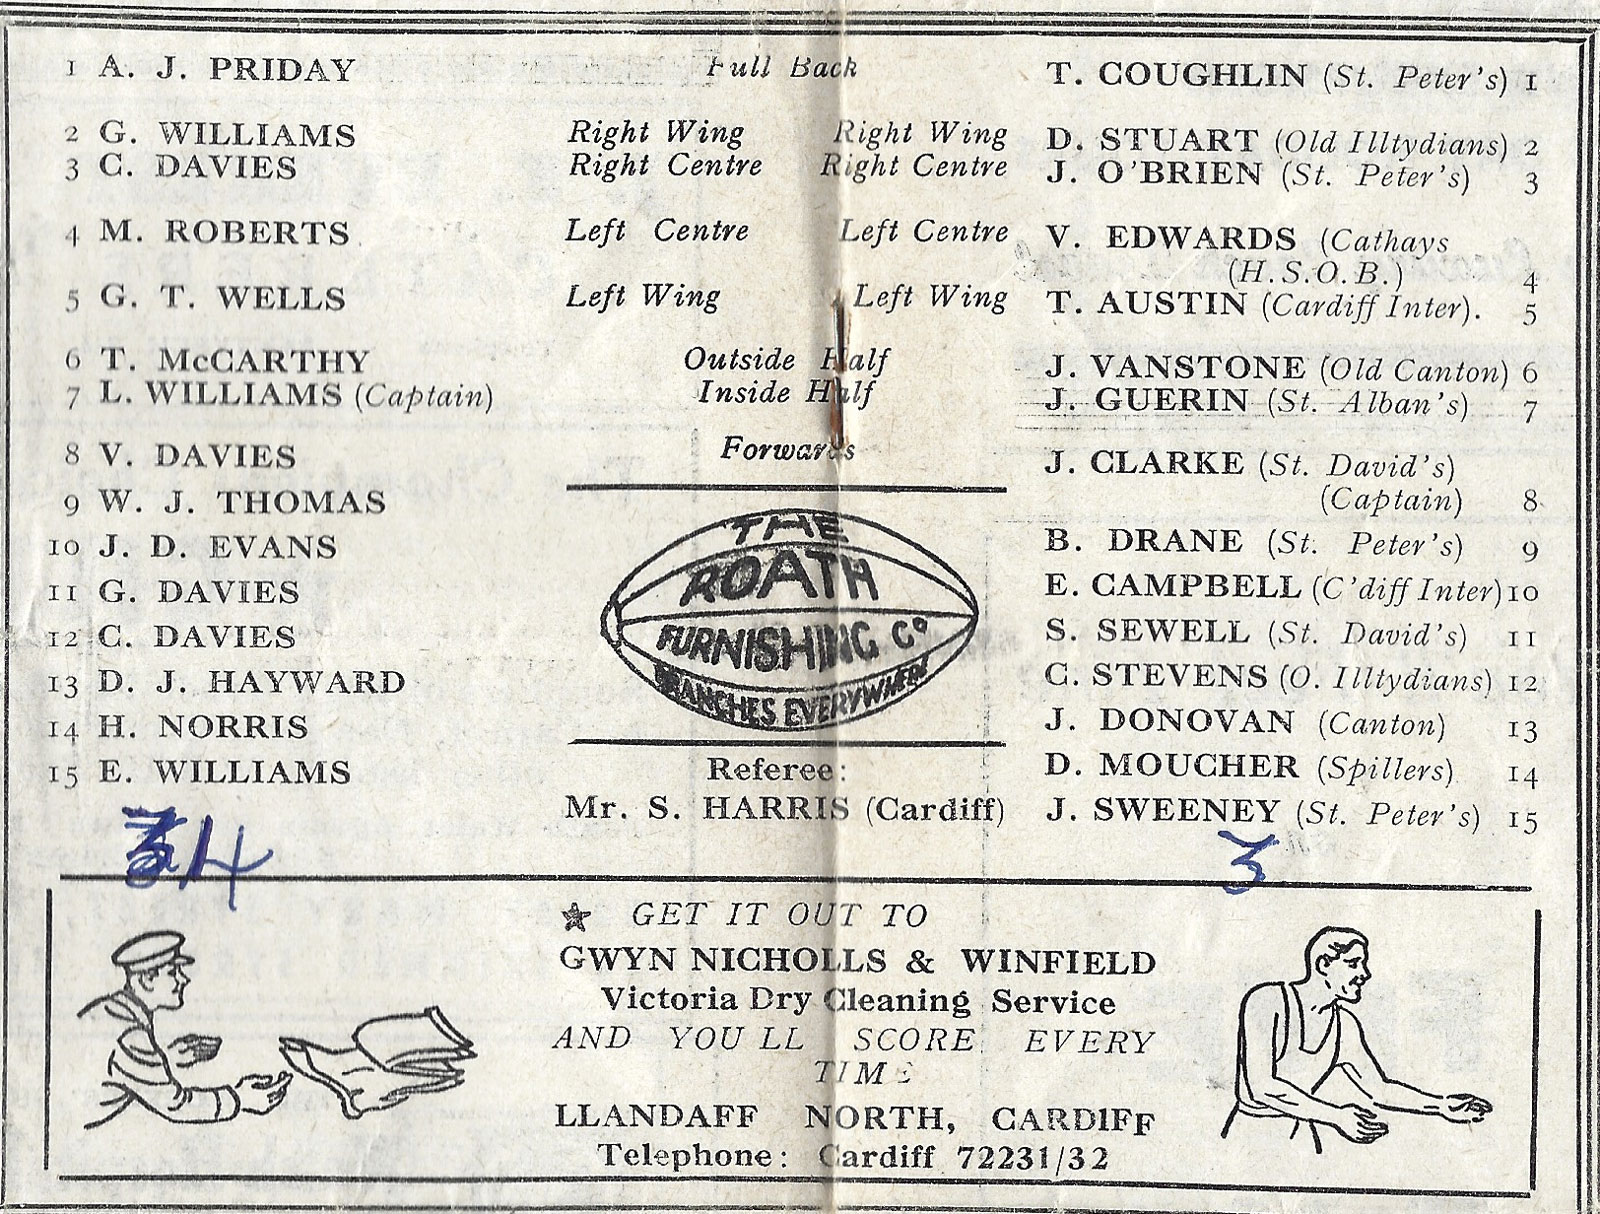 1 A. J. PRIDAY Full Back T. COUGHLIN (St. Peter's) 1
2 G. WILLIAMS Right Wing Right Wing D. STUART (Old Illtydians) 2
3 C. DAVIES Right Centre Right Centre J. O'BRIEN (St. Peter's) 3
4 M. ROBERTS Left Centre Left Centre V. EDWARDS (Cathays
(H.S.O.B.) 4
5 G. T. WELLS Left Wing Left Wing T. AUSTIN (Cardiff Inter). 5
6 T. McCARTHY Outside Half J. VANSTONE (Old Canton) 6
7 L. WILLIAMS (Captain) Inside Half J. GUERIN (St. Alban's) 7
8 V. DAVIES Forwards J. CLARKE (St. David's)
(Captain) 8
9 W. J. THOMAS B. DRANE (St. Peter's) 9
10 J. D. EVANS E. CAMPBELL (C'diff Inter) 10
11 G. DAVIES S. SEWELL (St. David's) 11
12 C. DAVIES C. STEVENS (O. Illtydians) 12
13 D. J. HAYWARD J. DONOVAN (Canton) 13
14 H. NORRIS D. MOUCHER (Spillers) 14
15 E. WILLIAMS J. SWEENEY (St. Peter's) 15
THE
ROATH
FURNISHING Co
BRANCHES EVERYWHERE
Referee:
Mr. S. HARRIS (Cardiff)
14 3
GET IT OUT TO
GWYN NICHOLLS & WINFIELD
Victoria Dry Cleaning Service
AND YOU LL SCORE EVERY
TIME
LLANDAFF NORTH, CARDIFF
Telephone: Cardiff 72231/32